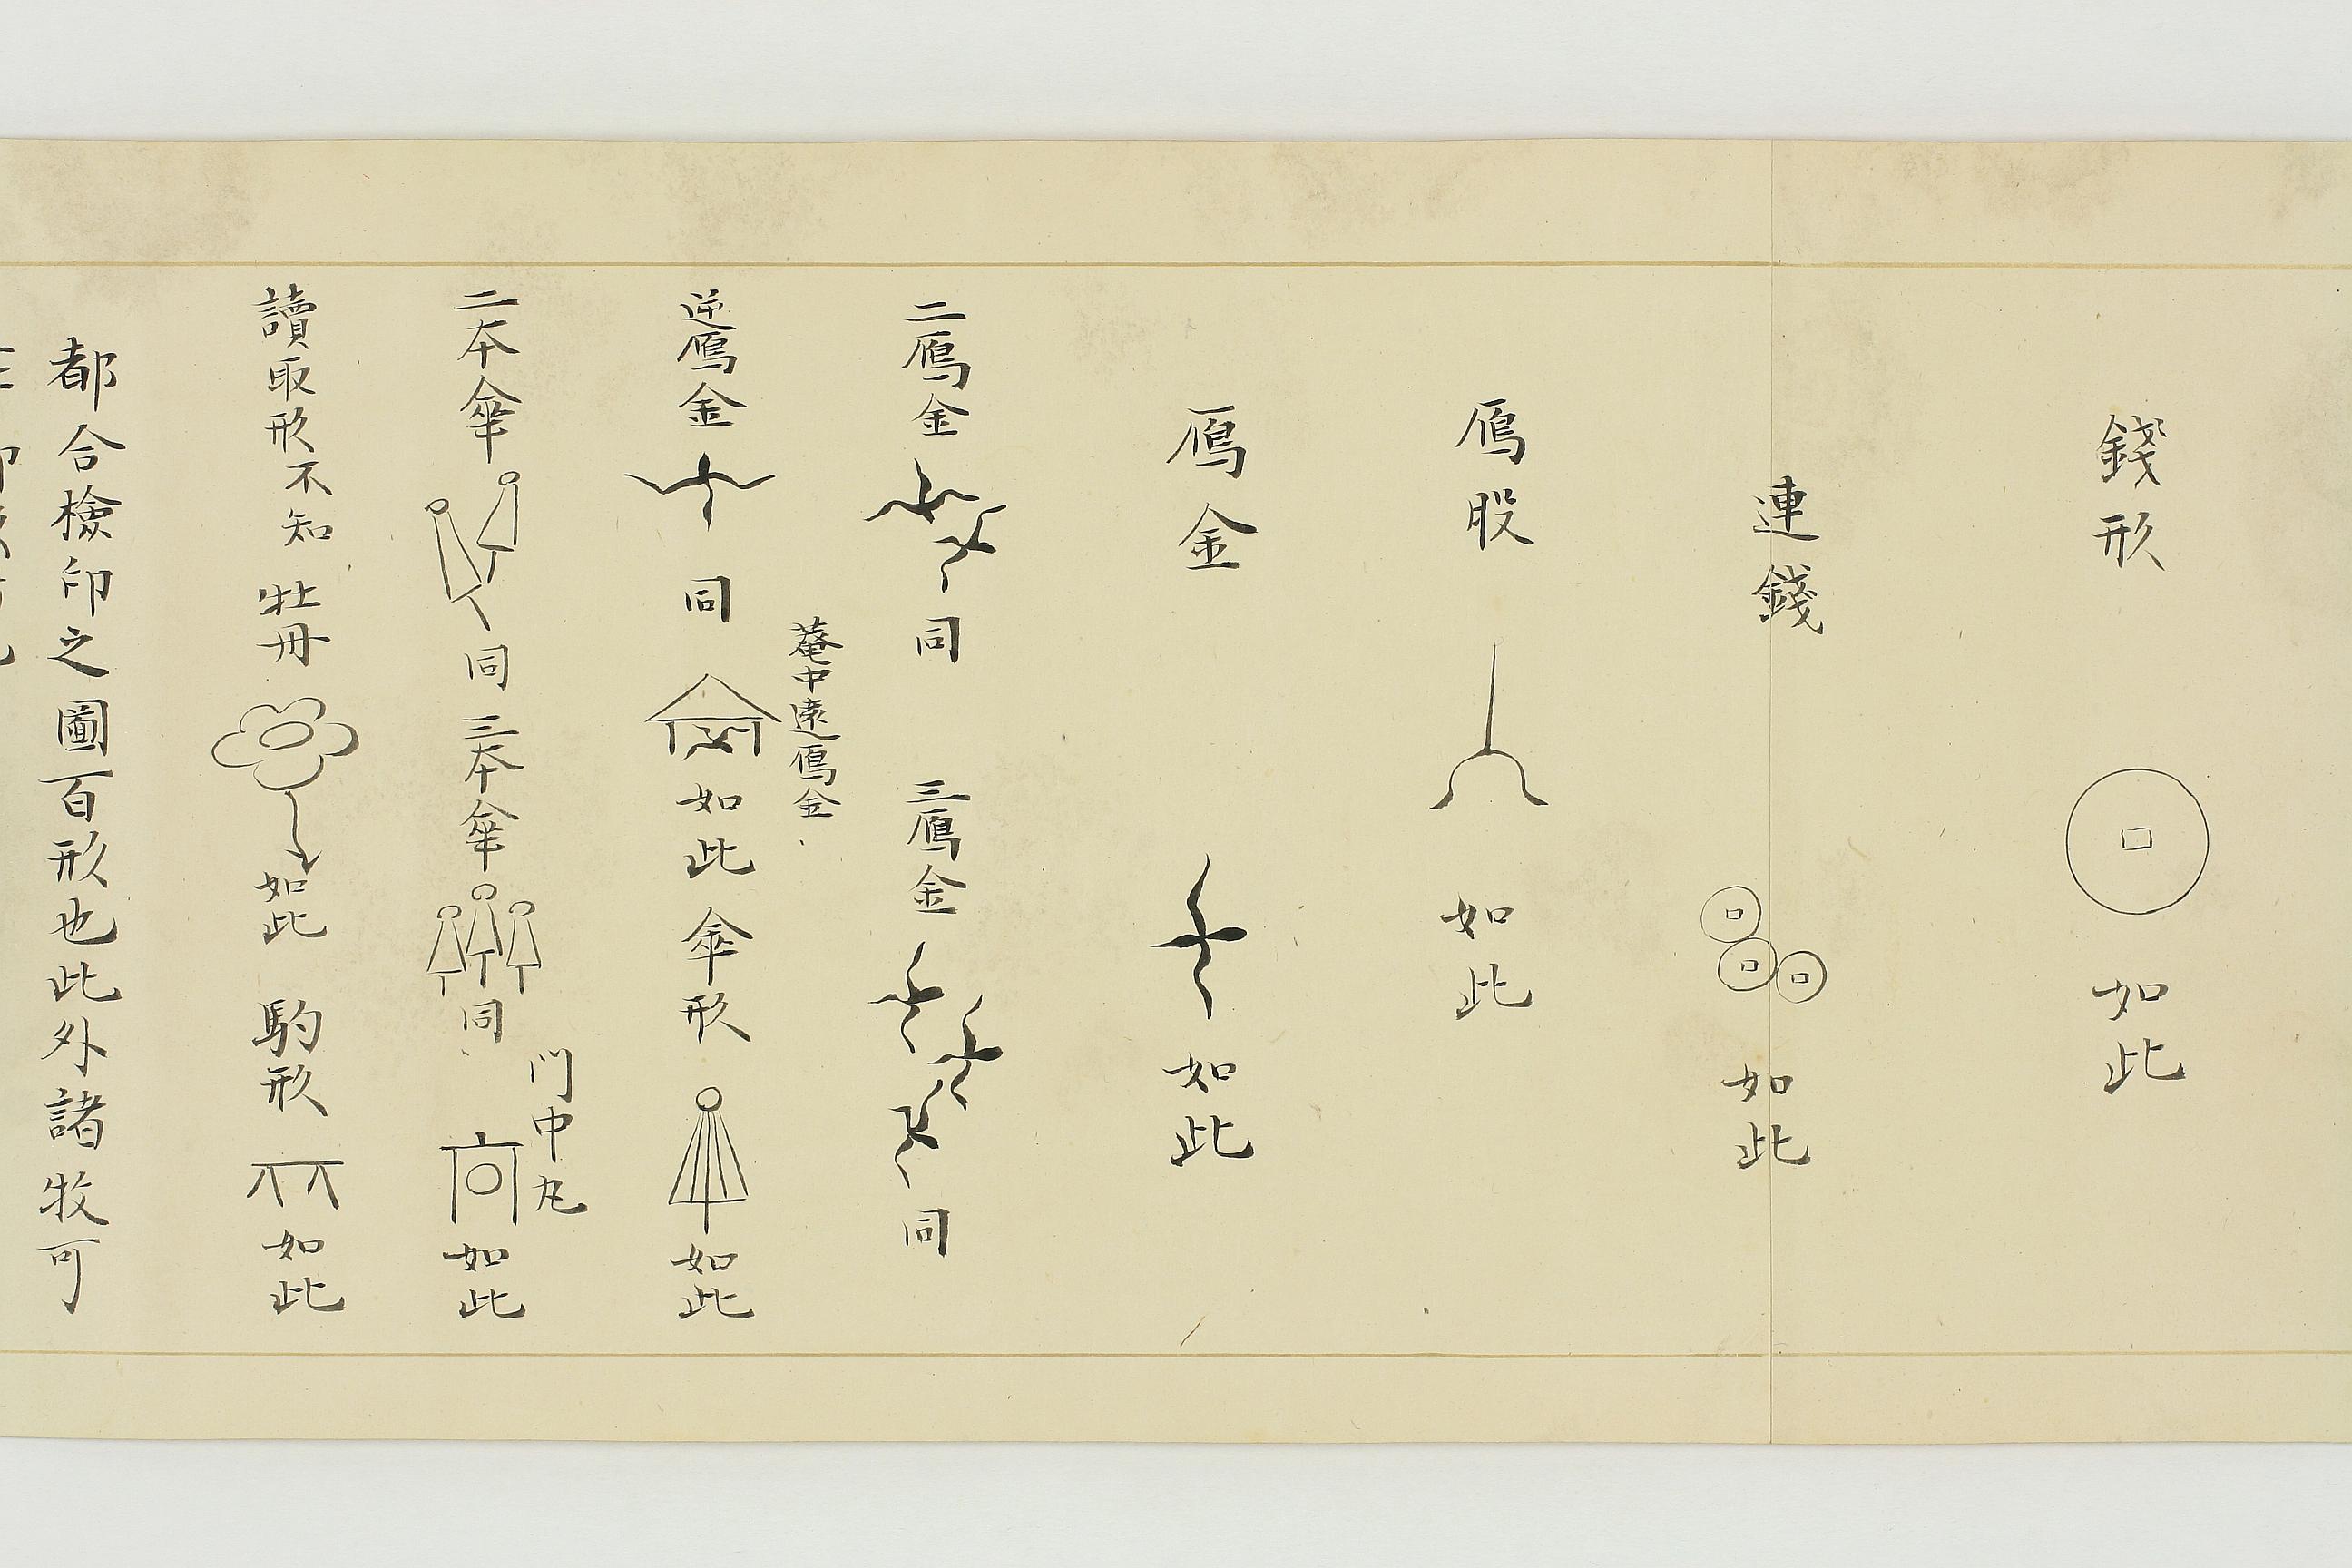 錢形 如此
連錢 如此
鴈股 如此
鴈金 如此
二鴈金 同 三鴈金 同
菴中遠鴈金
逆鴈金 同 如此 傘形 如此
二本傘 同 三本傘 同
門中丸
如此
讀取形不知 牡丹 如此 駒形 如此
都合檢印之圖百形也此外諸牧可